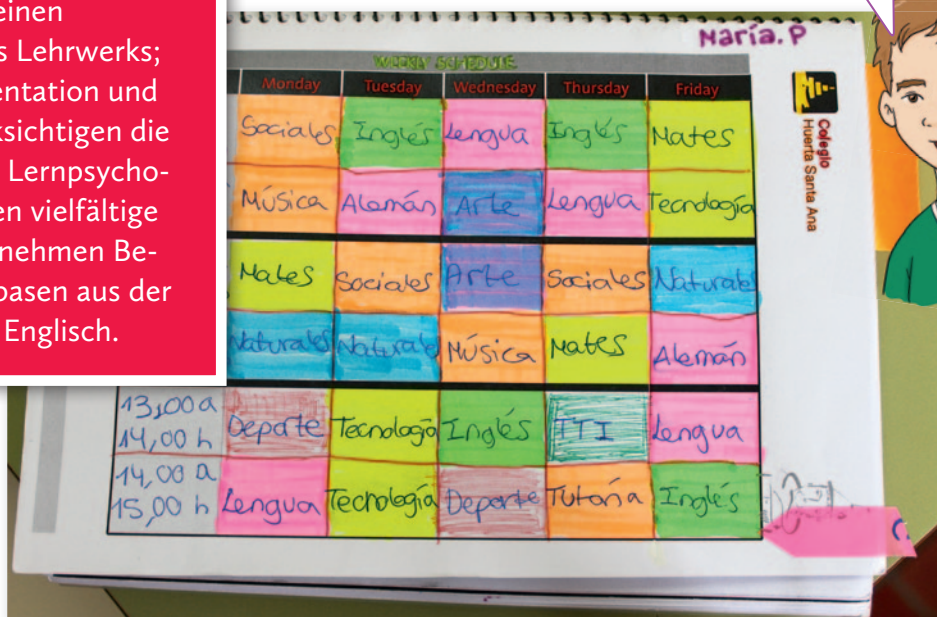 einen
s Lehrwerks;
entation und
ksichtigen die
Lernpsycho-
en vielfältige
nehmen Be-
basen aus der
Englisch.
María.P
WEEKLY SCHEDULE
Monday Tuesday Wednesday Thursday Friday
Sociales Inglés Lengua Inglés Mates
Música Alemán Arte Lengua Tecnología
Mates Sociales Arte Sociales Naturales
Naturales Naturales Música Mates Alemán
13,00 a 14,00 h Deporte Tecnología Inglés TTI Lengua
14,00 a 15,00 h Lengua Tecnología Deporte Tutoría Inglés
Colegio
Huerta Santa Ana